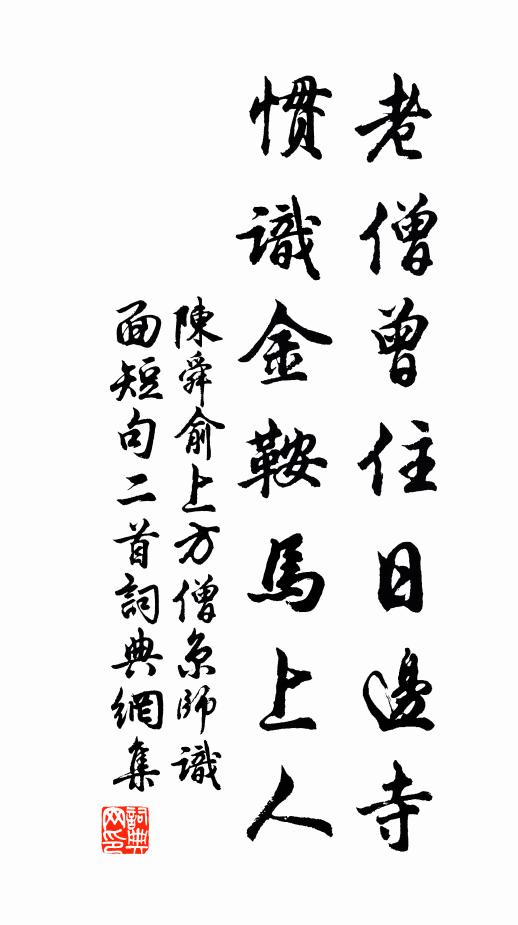 老僧曾住日邊寺
慣識金鞍馬上人
陳舜俞上方僧京師識
面短句二首詞典網集
詞典网印